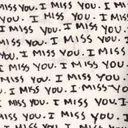 MISS YOU. I MISS YOU.
I MISS YOU. I MISS
YOU. I MISS YOU.
MISS YOU. I MISS YOU
YOU. I MISS YOU. I
I MISS YOU. I MISS YOU
MISS YOU. I MISS YOU.
MISS YOU. I MISS YOU
YOU. I MISS YOU
MISS YOU. I MISS YOU.
I MISS YOU. I MISS YOU